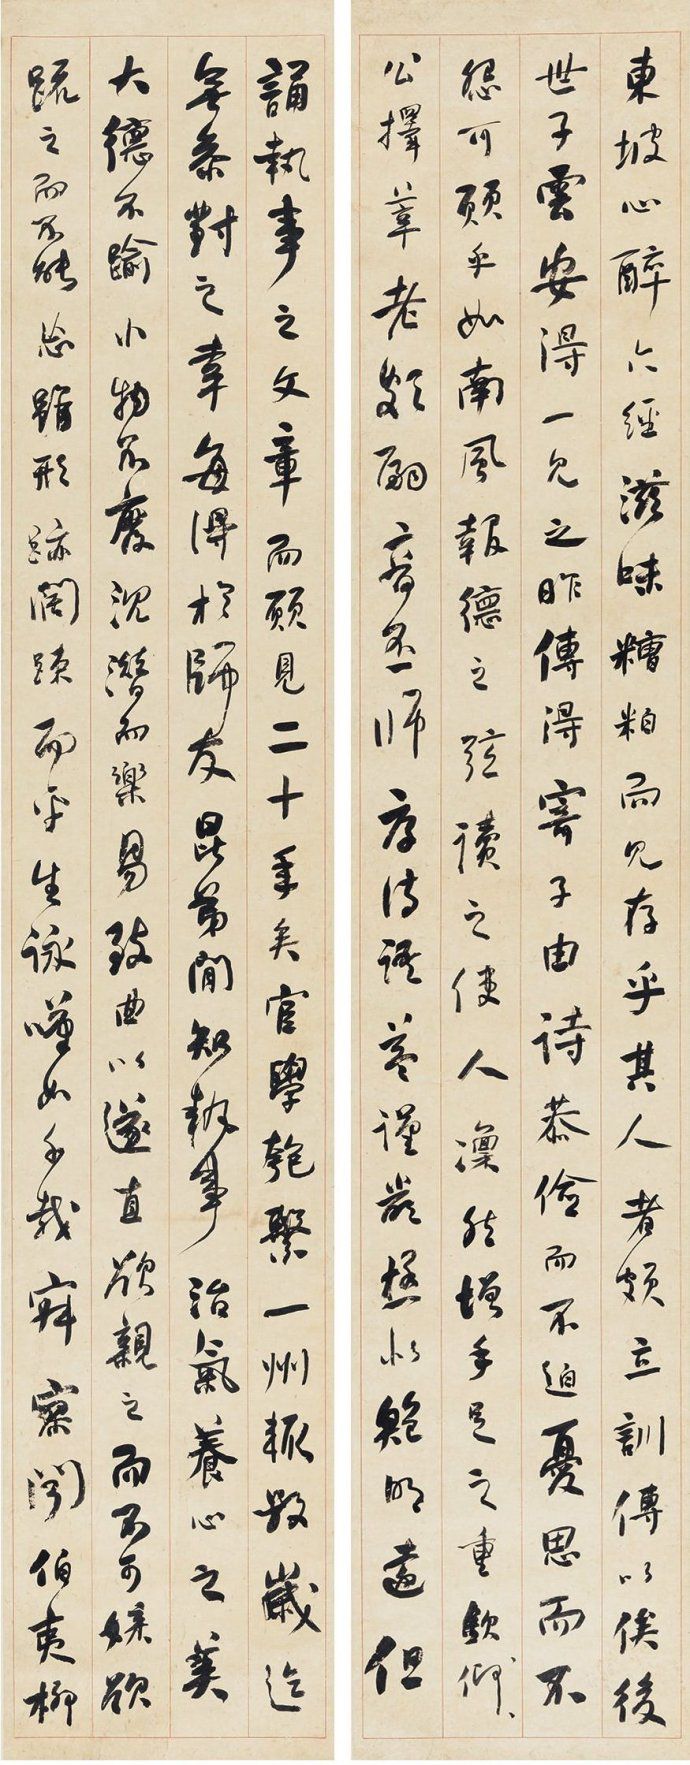 東坡心醉六經滋味糟粕而見存乎其人者頗立訓傳以俟後
世子雲安得一見之昨傳得寄子由詩恭儉而不迫憂思而不
怨可願乎如南風報德之弦讀之使人凜然增手足之重欽仰〻
公擇莘老頗嗣音否師厚詩語蓋謹嚴極似鮑明遠但
誦執事之文章而願見二十年矣官學匏繫一州輒數歲迄
無參對之幸每得於師友昆弟間知執事治氣養心之美
大德不踰小物不廢沉潛而樂易致曲以遂直欲親之而不可媟欲
疏之而不能忘雖形跡闊疎而平生詠嘆如千載寂寥聞伯夷柳